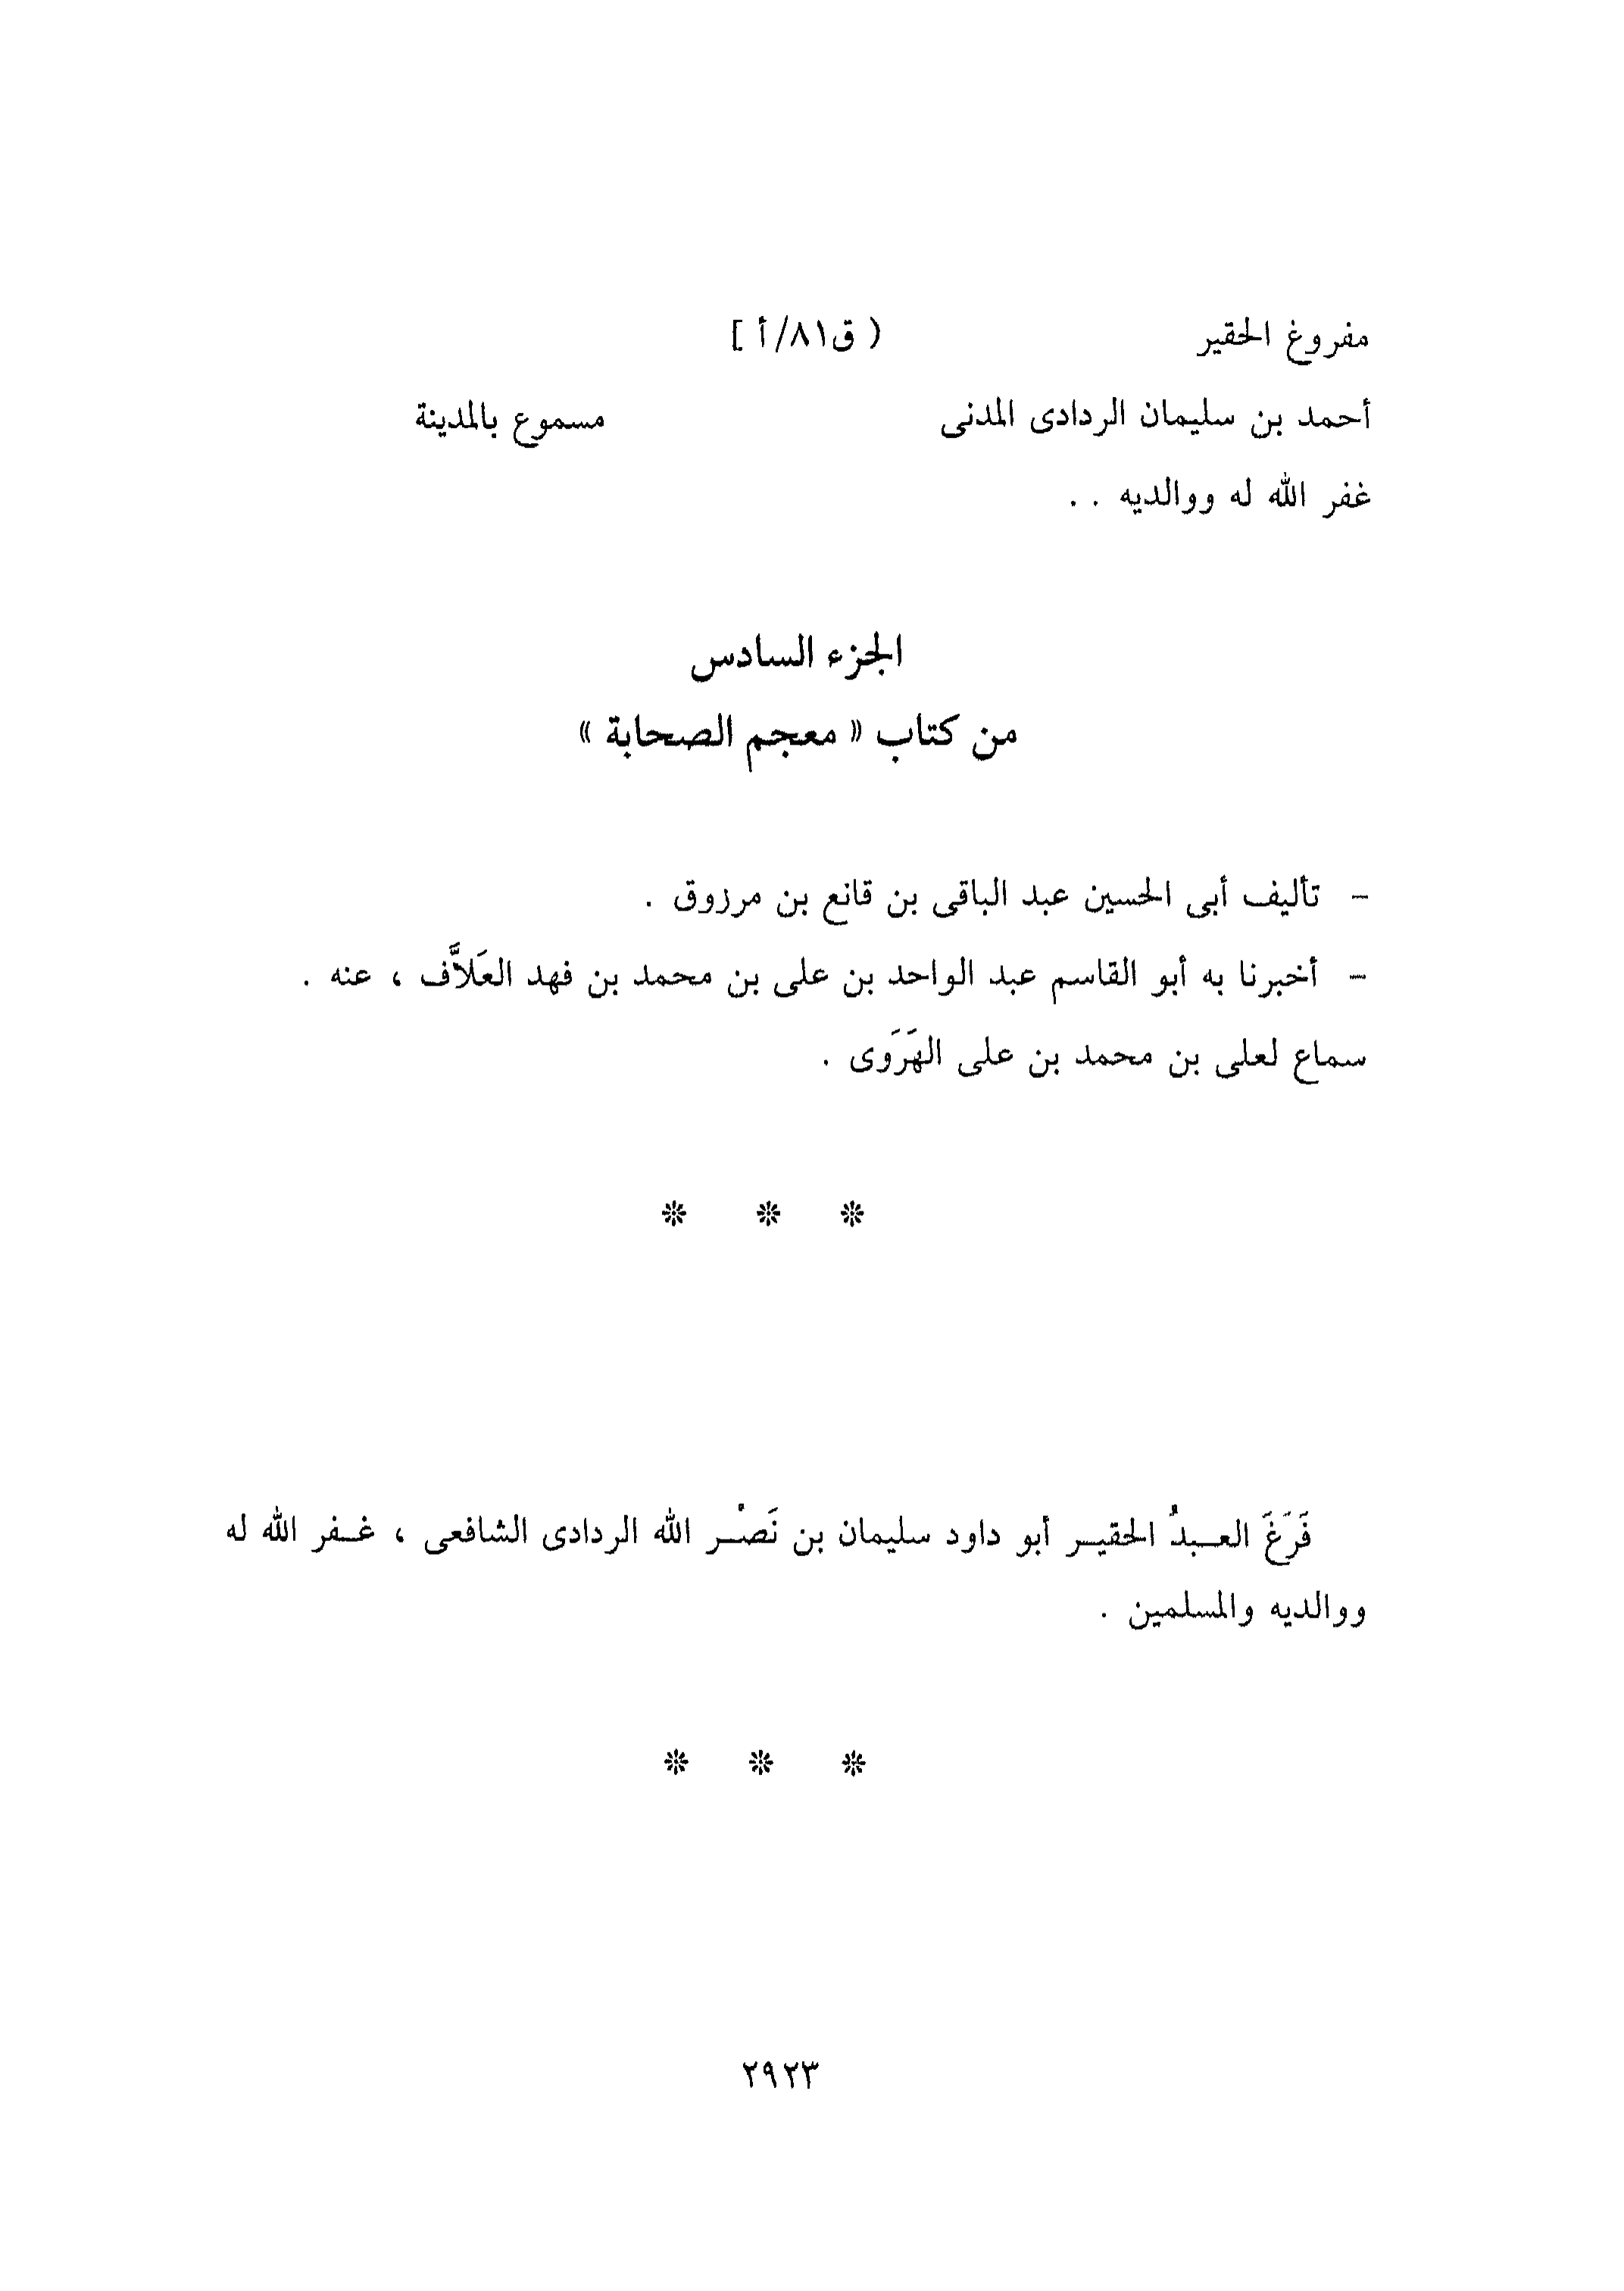 مفروغ الحقير ( ق٨١/أ ]
أحمد بن سليمان الردادى المدنى مسموع بالمدينة
غفر الله له ووالديه . .
الجزء السادس
من كتاب « معجم الصحابة »
- تأليف أبى الحسين عبد الباقى بن قانع بن مرزوق .
- أخبرنا به أبو القاسم عبد الواحد بن على بن محمد بن فهد العَلاَّف ، عنه .
سماع لعلى بن محمد بن على الهَرَوى .
* * *
فَرَغَ العبدُ الحقير أبو داود سليمان بن نَصْر الله الردادى الشافعى ، غفر الله له
ووالديه والمسلمين .
* * *
٢٩٢٣